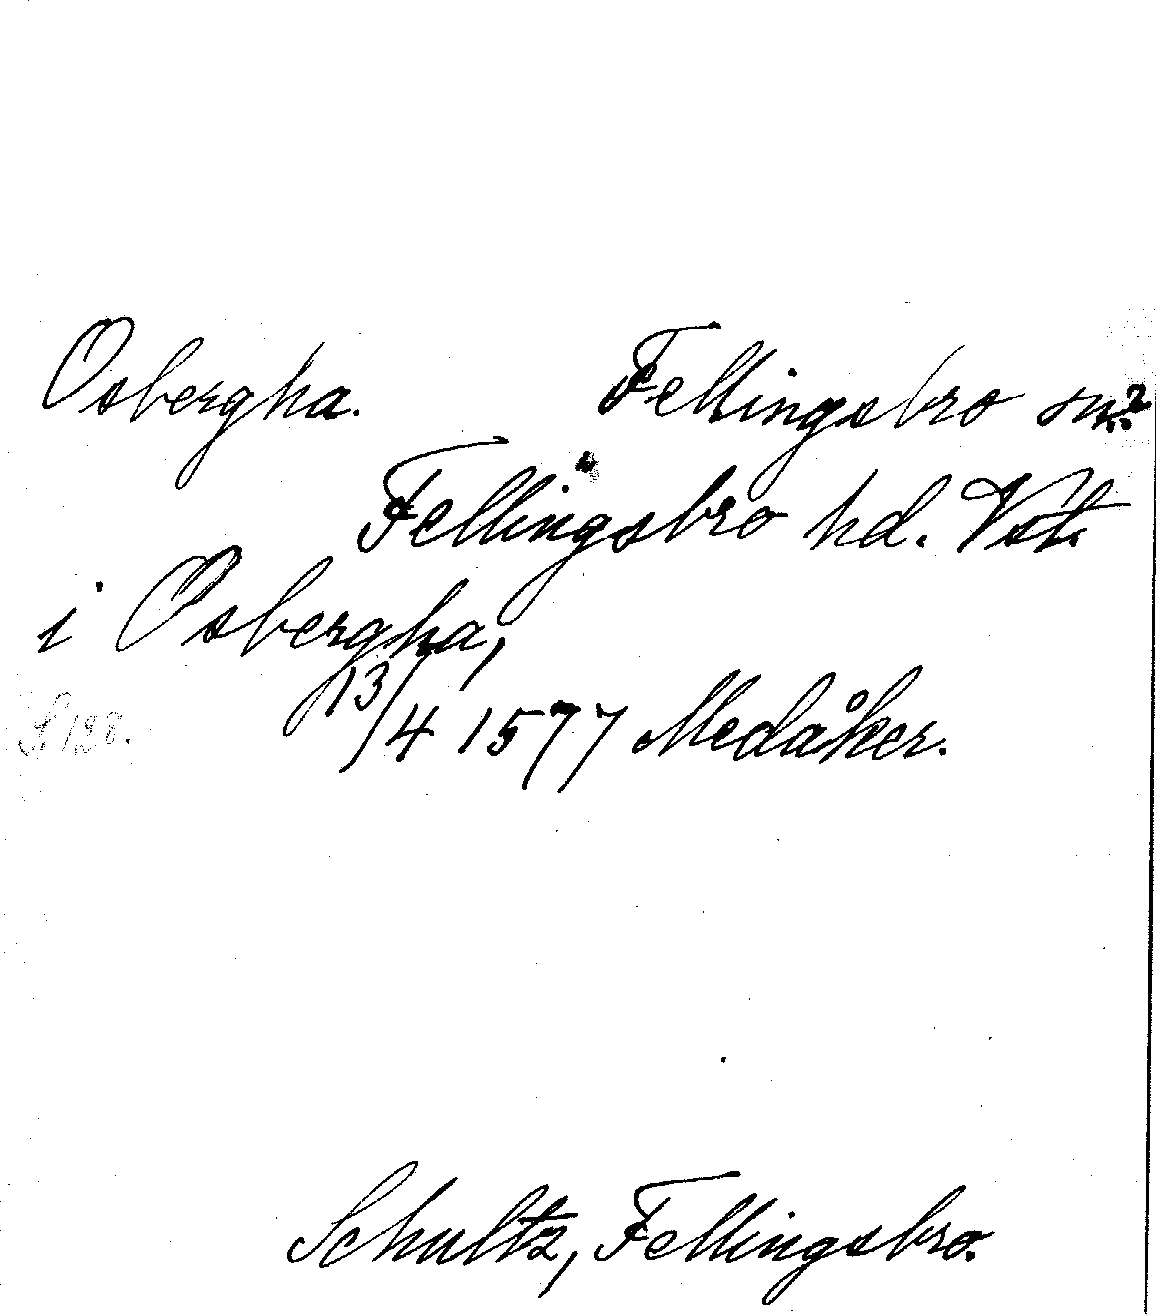 Osbergha. Fellingsbro sn?
Fellingsbro hd. Vstl.
i Osbergha,
13/4 1577 Medåker.
S. 198.
Schultz, Fellingsbro.